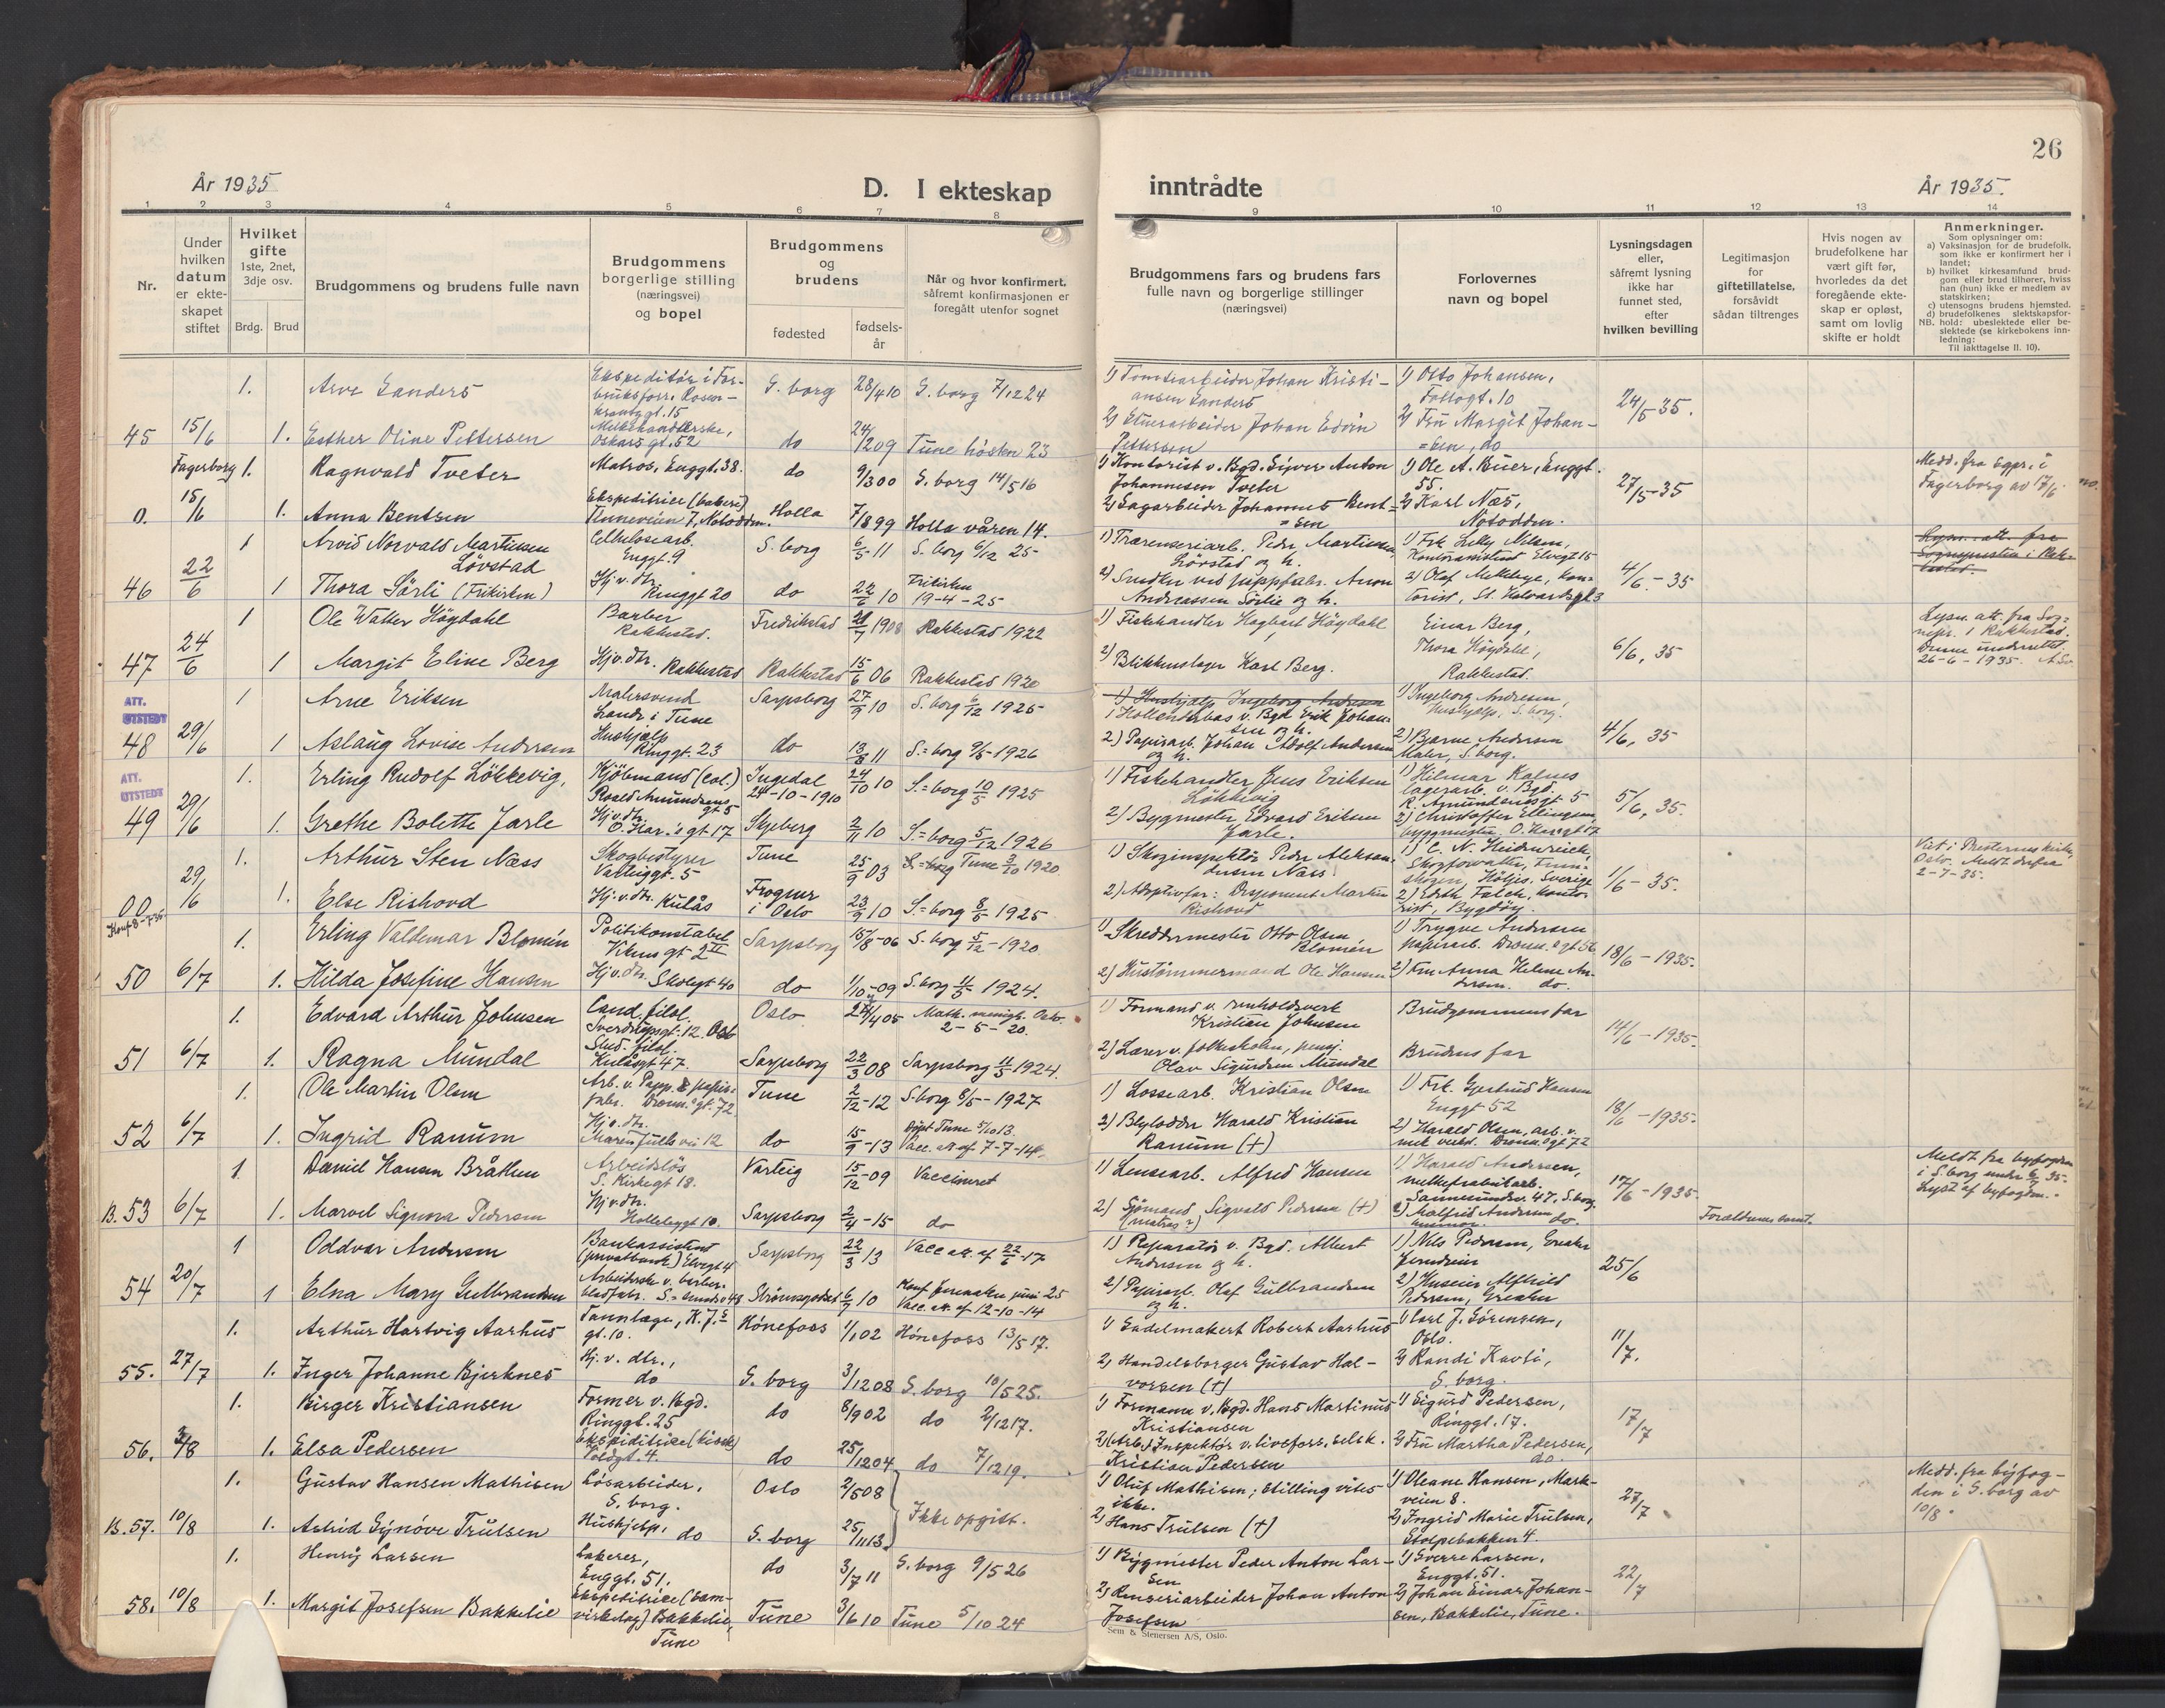 26
År 1935
D. I ekteskap
inntrådte
År 1935.
1 2 3 4 5 6 7 8 9 10 11 12 13 14
Nr.
Under hvilken datum er ekteskapet stiftet
Hvilket gifte
1ste, 2net, 3dje osv.
Brdg. Brud
Brudgommens og brudens fulle navn
Brudgommens borgerlige stilling (næringsvei) og bopel
Brudgommens og brudens
fødested
fødsels-år
Når og hvor konfirmert, såfremt konfirmasjonen er foregått utenfor sognet
Brudgommens fars og brudens fars fulle navn og borgerlige stillinger (næringsvei)
Forlovernes navn og bopel
Lysningsdagen eller, såfremt lysning ikke har funnet sted, efter hvilken bevilling
Legitimasjon for giftetillatelse, forsåvidt sådan tiltrenges
Hvis nogen av brudefolkene har vært gift før, hvorledes da det foregående ekteskap er opløst, samt om lovlig skifte er holdt
Anmerkninger.
Som oplysninger om:
a) Vaksinasjon for de brudefolk, som ikke er konfirmert her i landet;
b) hvilket kirkesamfund brudgom eller brud tilhører, hviss han (hun) ikke er medlem av statskirken;
c) utensogns brudens hjemsted.
d) brudefolkenes slektskapsforhold: ubeslektede eller beslektede (se kirkebokens innledning:
NB.
Til iakttagelse II. 10).
1. Arve Sanders Ekspeditør i For-
bruksforr. Rosen-
krantzgt. 15 S. borg 28/4 10 S. borg 7/12 24 1) Tomtearbeider Johan Kristi-
ansen Sanders 1) Otto Johansen,
Follogt. 10 24/5 35.
45 15/6 1. Esther Oline Pettersen Melkehandlerske,
Oskars gt. 52 do 24/2 09 Tune høsten 23 2) Stuerarbeider Johan Edvin
Pettersen 2) Fru Margit Johan-
=sen, do
Fagerborg 1. Ragnvald Tveter Matros, Enggt. 38. do 9/3 00 S. borg 14/5 16 1) Kontorist v. Bgd. Sigver Anton
Johannesen Tveter 1) Ole A. Buer, Enggt.
55. 27/5-35 Medd. fra sgpr. i
Fagerborg av 17/6.
0. 15/6 1. Anna Bentsen Ekspeditrice (bakeri)
Tinneveien 7, Notodden. Holla 7/8 99 Holla våren 14. 2) Sagarbeider Johannes Bent-
=sen 2) Karl Næs,
Notodden.
1 Arvid Norvald Martinsen
Løvstad Cellulosearb.
Enggt. 9 S. borg 6/5-11 S. borg 6/12 25- 1) Træsenseriarb. Peder Martinsen
Løvstad og h. 1) Frk Lilly Nilsen,
Kontoristind Elvegt 15 4/6-35
46 22/6 1 Thora Sørli (Frikirken) Hj. v. dtr.
Ringgt 20 do 22/6 10 Frikirken
19-4-25 2) Smed ved pappfabr. Anton
Andreassen Sørlie og h. 2) Olaf Mekelege, kon-
torist, St. Halvardsgt 3
1 Ole Walter Høydahl Barber
Rakkestad. Fredrikstad 1908 Rakkestad 1922 1) Fiskehandler Hagbart Høydahl Einar Berg, 6/6, 35 Lysn. att. fra Sog-
nepr. i Rakkestad.
Denne underrettet
26-6-1935.
47 24/6 1 Margit Eline Berg Hj v. dtr. Rakkestad Rakkestad 15/6 06 Rakkestad 1920 2) Blikkenslager Karl Berg. Thora Høydahl,
Rakkestad.
ATT. UTSTEDT
1 Arne Eriksen Malersvend
Lande i Tune Sarpsborg 27/9 10 S. borg 6/12 1925 1) Hollenderbas v. Bgd Erik Johan-
sen og h. 1) Ingeborg Andresen,
Hushjelp, S. borg. 4/6, 35
48 29/6 1 Aslaug Lovise Andersen Hushjelp
Ringgt. 23 do 13/8-11 S.=borg 9/5-1926 2) Papirarb. Johan Adolf Andersen
og h. 2) Bjarne Andersen
Maler, S. borg.
ATT. UTSTEDT
1. Erling Rudolf Løkkevig, Kjøbmand (col.)
Roald Amundsens
gt 5 Ingedal
24-10-1910 24/10 10 S.=borg 10/5 1925 1) Fiskehandler Jens Eriksen
Løkkevig 1) Hilmar Kalnes
lagerarb. v. Bgd.
R. Amundensgt 5 5/6, 35.
49 29/6 1. Grethe Bolette Jarle Hj v. dtr.
O. Har.'s gt 17 Skjeberg 2/1 10 S.=borg 5/12 1926 2) Bygmester Edvard Eriksen
Jarle. 2) Christoffer Ellingsen,
byggmester, O. Harsgt 17
1. Arthur Sten Næss Skogbestyrer
Varteiggt. 5 Tune 25/9 03 Tune 3/10 1920 1) Skoginspektør Peder Aleksan-
dersen Næss 1) C. N. Heidenreich,
Skogforvalter, Finn-
skogen, Höljes. Sverige 1/6-35. Viet i Presternes kirke,
Oslo. Meldt derfra
2-7-35.
00 29/6 1. Else Rishovd Hj. v. dtr. Kulås Frogner
i Oslo 23/9 10 S.=borg 8/5 1925 2) Adoptivfar: Disponent Martin
Rishovd 2) Edith Falch, konto-
rist, Bygdøy.
1. Erling Valdemar Blomén Politikonstabel
gt 2 II Sarpsborg 15/8-06 S. borg 5/12-1920 1) Skreddermester Otto Olsen
Blomén 1) Trygve Andersen
papirarb. Dronn.s gt 56 18/6-1935.
50 6/7 1. Hilda Josefine Hansen Hj v. dtr. Skolegt 40 do 1/10-09 S. borg 11/5 1924. 2) Hustømmermand Ole Hansen 2) Fru Anna Helene An-
dersen. do.
1. Edvard Arthur Johnsen Cand. filol.
Sverdrupsgt. 12. Oslo Oslo 4 05 Math. menigh. Oslo.
2-5-20. 1) Formand v. renholdsverk
Kristian Johnsen Brudgommens far 14/6-1935.
51 6/7 1. Ragna Mundal Stud. filol.
Kulåsgt 47. Sarpsborg 22/3 08 Sarpsborg 11/5 1924. 2) Lærer v. folkeskolen, pensj.
Olav Sigurdsen Mundal Brudens far
1. Ole Martin Olsen Arb. v. Papp & papir-
fabr. Dronn.s gt. 72 Tune 2/12-12 S. borg 8/5-1927 1) Lossearb. Kristian Olsen 1) Frk. Gjertrud Hansen
Enggt 52 18/6-1935.
52 6/7 1. Ingrid Ranum Hj v. dtr.
Marenfulls vei 12 do 15/9-13 Døpt Tune 5/10 13.
Vacc. att. af 7-7-14. 2) Blylodder Harald Kristian
Ranum (+) 2) Harald Olsen, arb. v.
mek verksd. Dronn.s gt 72
1. Daniel Hansen Bråthen Arbeidsløs
S. Kirkegt 18. Varteig 15/12-09 Vaccineret 1) Lensearb. Alfred Hansen 1) Harald Andersen,
melkefabrikarb.
Sannesundsv. 47, S. borg. 17/6-1935. Meldt fra byfogden
i S. borg under 6/7 35.
Lyst af byfogden.
B. 53 6/7 1. Marvel Signora Pedersen Hj v. dtr.
10. Sarpsborg 2/4-15 do 2) Sjømand Sigvald Pedersen (+)
(matros?) 2) Malfrid Andersen
do. Foreldrenes samt.
1 Oddvar Andersen Bankassistent
(privatbank) Elvegt 4 Sarpsborg 22/3 13 Vacc att. af 22/6-17 1) Reparatør v. Bgd. Albert
Andersen og h. 1) Nils Pedersen, Greaker 25/6
54 20/7 1 Elna Mary Gulbrandsen Arbeiderske v. barber-
bladfabr. S.=sundsv 48 Strømsgodset 6/7 10 Konf juni 25
Vacc. att. af 12-10-14 2) Papirarb. Olaf Gulbrandsen
og h. 2) Alfhild
Pedersen, Greaker
1. Arthur Hartvig Aarhus Tannlæge, K. J.s
gt. 10. Hønefoss 1/1 02 Hønefoss 13/5 17. 1) Sadelmakert Robert Aarhus 1) Carl J. Sørensen,
Oslo. 11/7.
55. 27/7 1. Inger Johanne Bjerknes Hj. v. dtr.,
do S. borg 3/12 08 S. borg 10/5 25. 2) Handelsborger Gustav Hal-
vorsen (+) 2) Randi Kavli,
S. borg.
1. Birger Kristiansen Former v. Bgd.
Ringgt. 25 do 8/9 02 do 2/12 17. 1) Formann v. Bgd. Hans Martinus
Kristiansen 1) Sigurd Pedersen,
Ringgt. 17. 17/7
56. 3/8 1. Elsa Pedersen Ekspeditrice (kiosk)
gt. 4. do 25/12 04 do 7/12 19. 2) (Arb.) Inspektør v. livsfors. selsk.
Kristian Pedersen 2) Fru Martha Pedersen,
do.
1. Gustav Hansen Mathisen Løsarbeider,
S. borg. Oslo 2/5 08 Ikke opgitt. 1) Oluf Mathisen; stilling vites
ikke. 1) Oleane Hansen, Mark-
veien 8. 27/7 Medd. fra byfog-
den i S. borg av
10/8.
B. 57. 10/8 1. Astrid Synøve Trulsen Hushjelp, do S. borg 25/11 13 2) Hans Trulsen (+) 2) Ingrid Marie Trulsen,
Stolpebakken 4.
1. Henry Larsen Lakerer,
Enggt. 51. do 3/7 11 S. borg 9/5 26 1) Bygmester Peder Anton Lar-
sen 1) Sverre Larsen,
Enggt. 51. 22/7
58. 10/8 1. Margit Josefsen Bakkelie Ekspeditrice (sam-
virkelag) Bakkelie,
Tune Tune 3/6 10 Tune 5/10 24 2) Renseriarbeider Johan Anton
Josefsen 2) Johan Einar Johan-
sen, Bakkelie, Tune.
Sem & Stenersen A/S, Oslo.